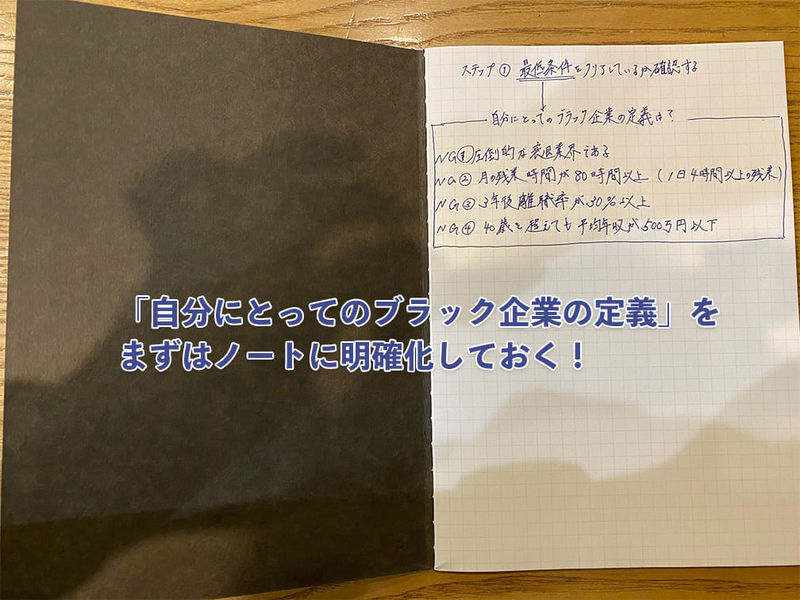 ステップ① 最低条件をクリアしているか確認する
自分にとってのブラック企業の定義は?
NG① 圧倒的な衰退業界である
NG② 月の残業時間が80時間以上(1日4時間以上の残業)
NG③ 3年後離職率が30%以上
NG④ 40歳を超えても平均年収が500万円以下
「自分にとってのブラック企業の定義」を
まずはノートに明確化しておく!